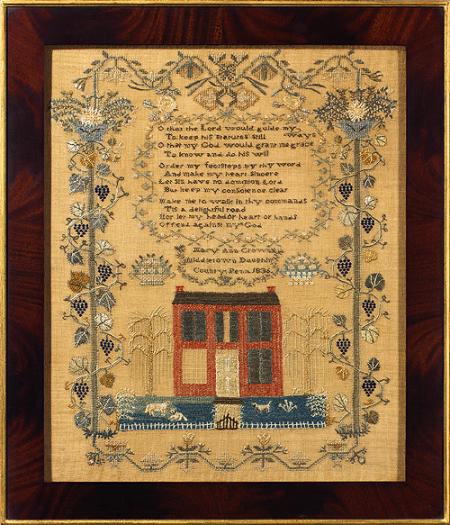 O that the Lord would guide my
ways
To keep his statutes still
O that my God would grant me grace
To know and do his will
Order my footsteps by thy word
And make my heart sincere
Let sin have no dominion Lord
But keep my conscience clear
Make me to walk in thy commands
Tis a delightful road
Nor let my head or heart or hands
Offend against my God
Mary Ann
Middletown Dauphin
County Penn 1836